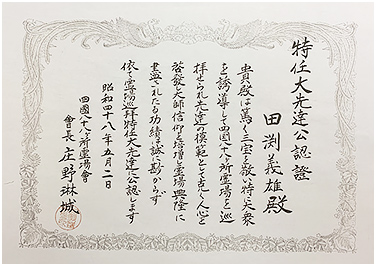 特任大先達公認證
田渕義雄殿
貴殿は篤く三宝を敬い特に大衆
を誘導して四国八十八ヶ所霊場を巡
拝せられ先達の模範として克く人心を
啓發し大師信仰を培増し霊場興隆に
盡されたる功績は誠に尠からず
依て霊場巡拝特任大先達に公認します
昭和四十八年五月二日
四國八十八ヶ所霊場會
會長 庄野琳城